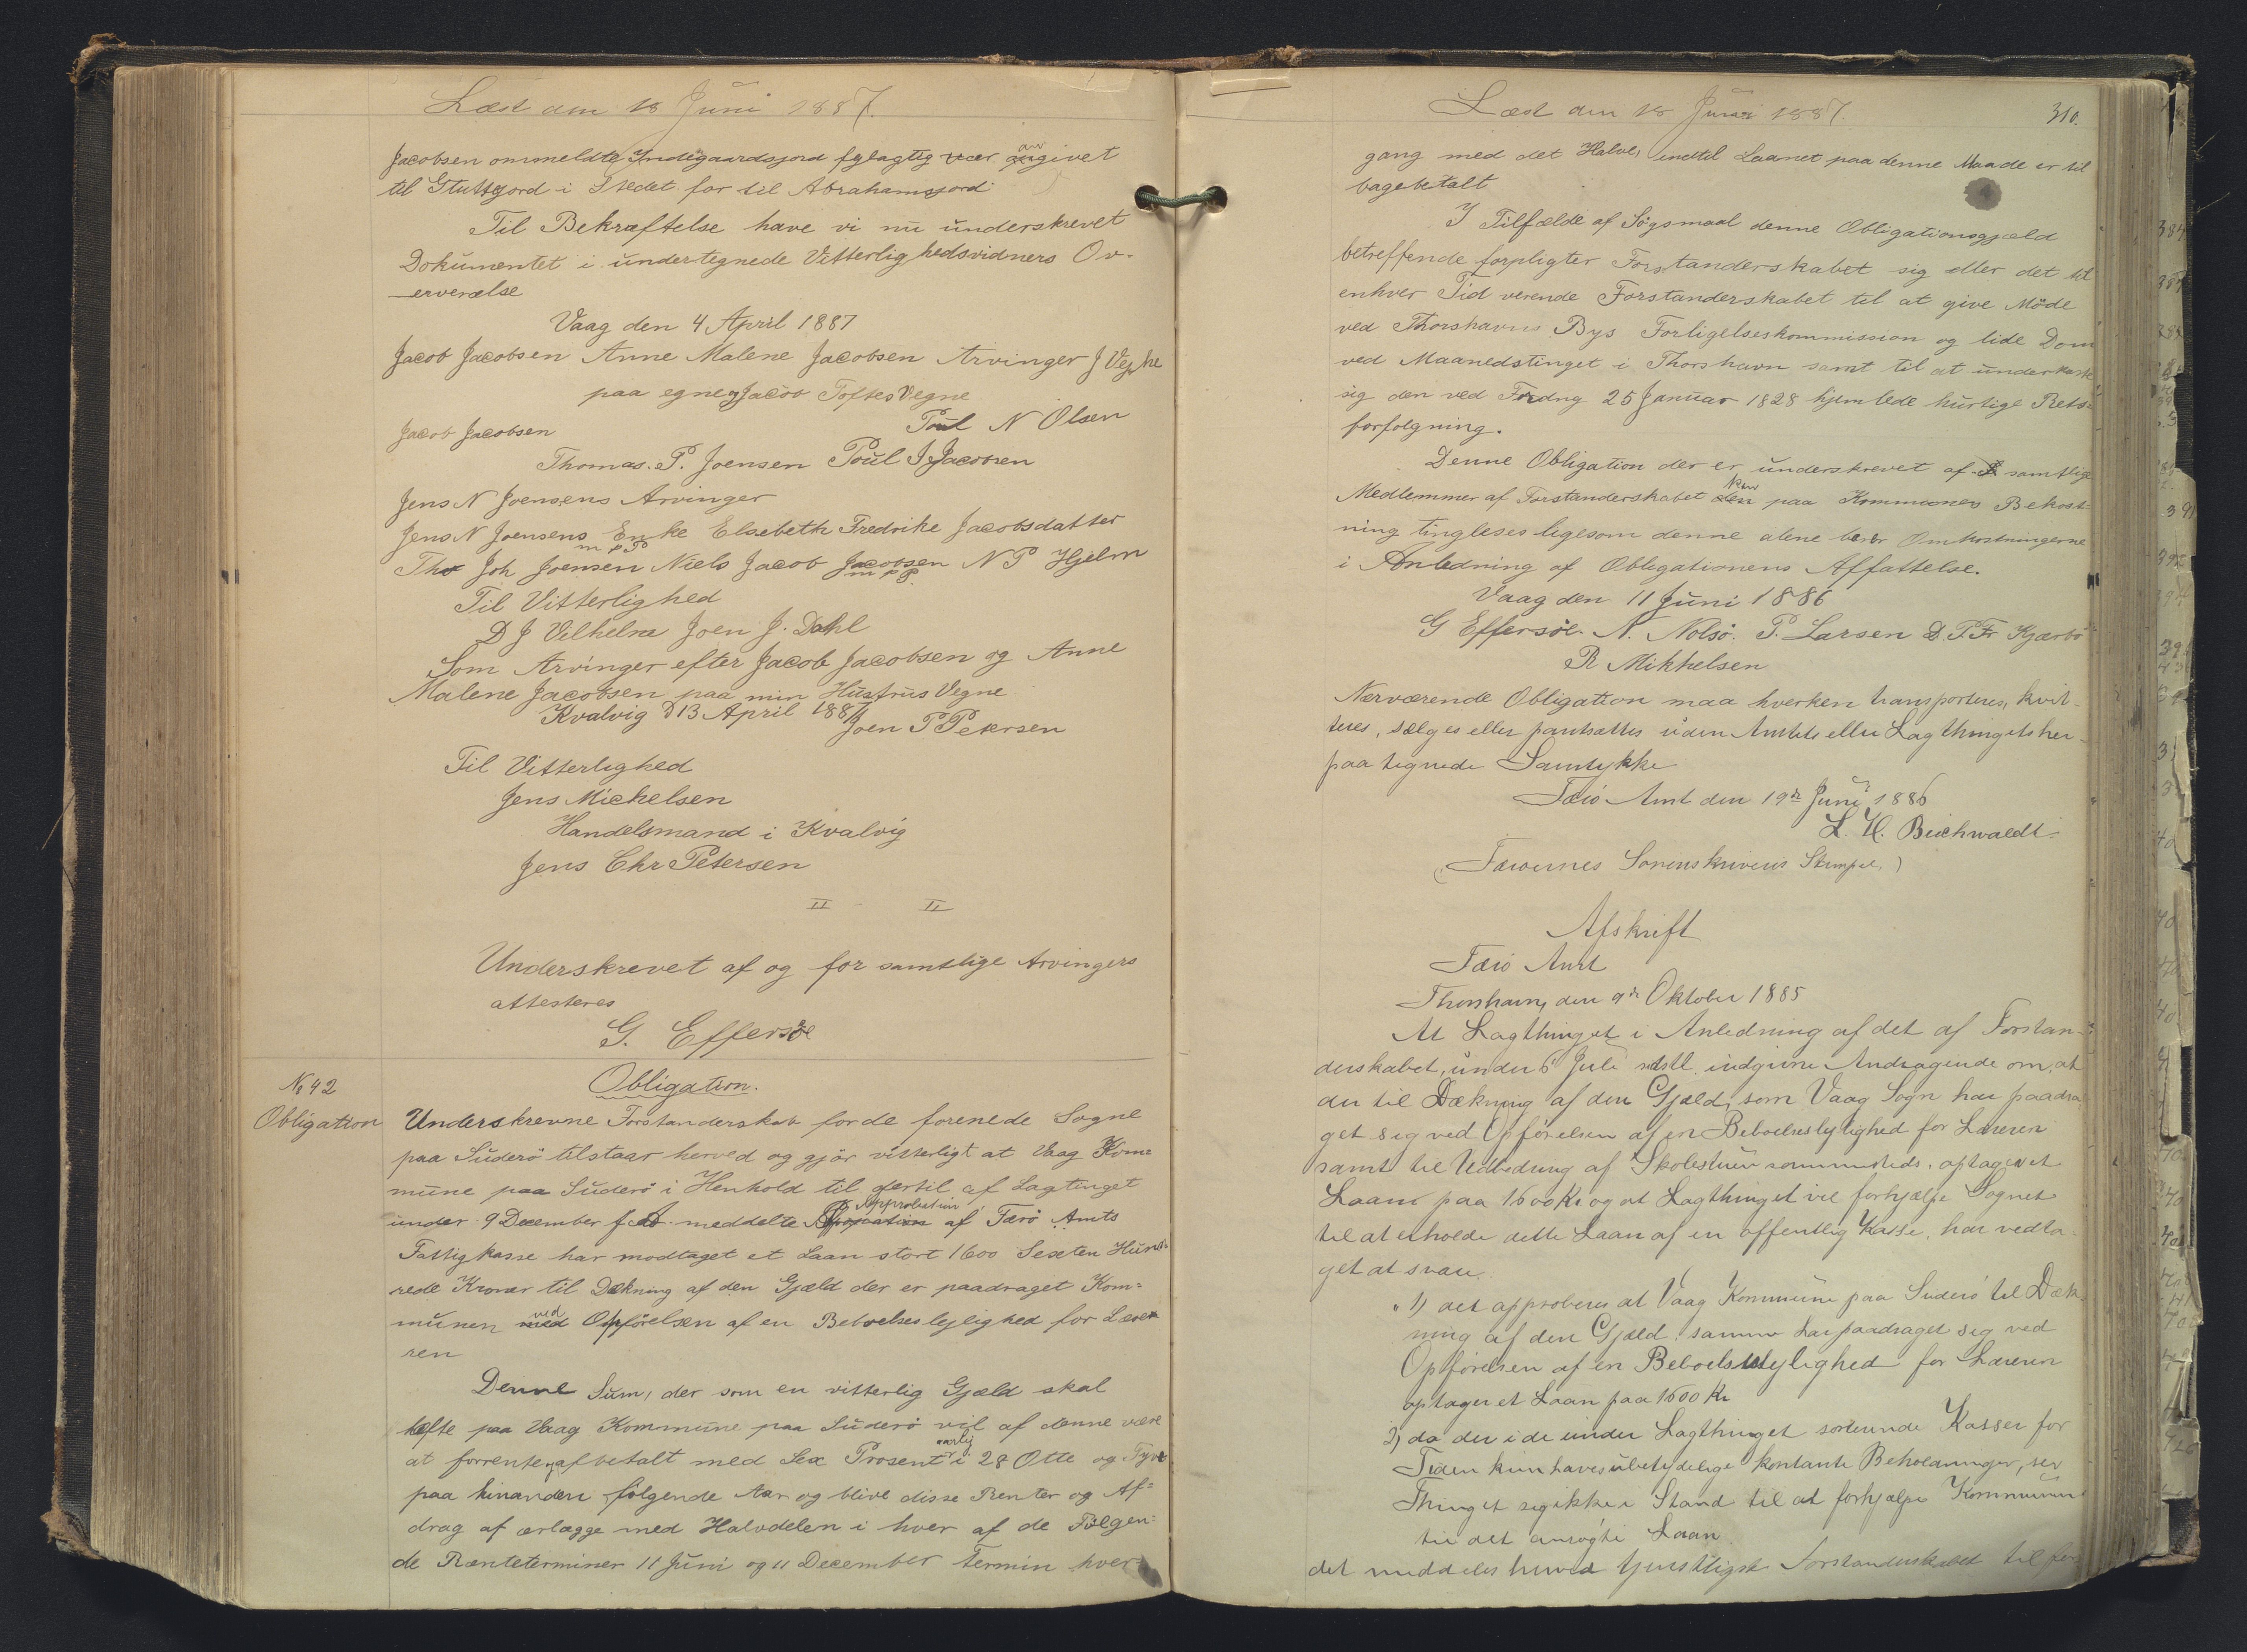 Læst den 18 Juni 1887.
Jacobsen ommeldte Indegaardsjord fylagtig er angivet
til Gtuttsjord i Stedet for til Abrahamsjord
Til Bekræftelse have vi nu underskrevet
Dokumentet i undertegnede Vitterlighedsvidners Ov-
erværelse
Vaag den 4 April 1887
Jacob Jacobsen Anne Malene Jacobsen Arvinger J Vejhe
paa egne og Jacob Toftes Vegne
Jacob Jacobsen Poul N Olsen
Thomas. P. Joensen Poul J Jacobsen
Jens N Joensens Arvinger
Jens N Joensens Enke Elsebeth Fredrike Jacobsdatter
m p P
Tho Joh Joensen Niels Jacob Jacobsen N P Hjelm
m p P.
Til Vitterlighed
D J Vilhelm Joen J. Dahl
Som Arvinger efter Jacob Jacobsen og Anne
Malene Jacobsen paa min Hustrus Vegne
Kvalvig d 13 April 1887
Joen P Petersen
Til Vitterlighed
Jens Michelsen
Handelsmand i Kvalvig
Jens Chr Petersen
II - II
Underskrevet af og for samtlige Arvingers
attesteres
G. Effersøe
No 42 Obligation.
Obligation Underskrevne Forstanderskab for de forenede Sogne
paa Suderö tilstaar herved og gjör vitterligt at Vaag Kom=
mune paa Suderö i Henhold til dertil af Lagtinget
under 9 December f A meddelte Approbation af Færö Amts
Fattigkasse har modtaget et Laan stort 1600 Sexten Hund=
rede Kroner til Dækning af den Gjæld der er paadraget Kom=
munen ved Opförelsen af en Beboelseslejlighed for Lære
ren
Denne Sum, der som en vitterlig Gjæld skal
hæfte paa Vaag Kommune paa Suderö vil af denne være
at forrente og afbetalt med Sex Prosent aarlig i 28 Otte og Tyve
paa hinanden fölgende Aar og blive disse Renter og Af=
drag af erlægge med Halvdelen i hver af de Fölgen=
de Rænteterminer 11 Juni og 11 December Termin hver
Læst den 18 Juni 1887. 310.
gang med det Halve, indtil Laanet paa denne Maade er til
bagebetalt
I Tilfælde af Sögsmaal denne Obligationsgjæld
betreffende forpligter Forstanderskabet sig eller det til
enhver Tid verende Forstanderskabet til at give Möde
ved Thorshavns Bys Forligelseskommission og lide Dom
ved Maanedstinget i Thorshavn samt til at underkaste
sig den ved Frdng 25 Januar 1828 hjemlede hurtige Rets=
forfolgning.
Denne Obligation der er underskrevet af samtlige
Medlemmer af Forstanderskabet kan paa Kommunens Bekost-
ning tingleses ligesom denne alene bærer Omkostningerne
i Anledning af Obligationens Affattelse.
Vaag den 11 Juni 1886
G Effersöe. N. Nolsö. P. Larsen D. P. Fr Kjærbo
R Mikkelsen
Nærværende Obligation maa hverken transporteres, kvit-
teres, sælges eller pantsættes uden Amtets eller Lagthingets her-
paa tegnede Samtykke
Færö Amt den 19de Juni 1886
L. H. Buchwaldt.
(Færoernes Sorenskrivers Stempel)
Afskrift
Færö Amt
Thorshavn, den 9de Oktober 1885
At Lagthinget i Anledning af det af Forstan-
derskabet, under 6 Juli næstl. indgivne Andragende om, at
der til Dækning af den Gjæld, som Vaag Sogn har paadra
get sig ved Opförelsen af en Beboelseslejlighed for Læreren
samt til Udbedring af Skolestuen sammesteds, optages et
Laan paa 1600 Kr og at Lagthinget vil forhjælpe Sognet
til at erholde dette Laan af en offentlig Kasse, har vedta-
get at svare.
"1) det approberes at Vaag Kommune paa Suderö til Dæk
ning af den Gjæld samme har paadraget sig ved
Opförelsen af en Beboelseslejlighed for Læreren
optager et Laan paa 1600 Kr
2) da der i de under Lagthinget sorterende Kasser for
Tiden kun haves ubetydelige kontante Beholdninger, ser
Thinget sig ikke i Stand til at forhjælpe Kommunen
til det ansøgte Laan
det meddeles herved tjenstligst Forstanderskabet til for